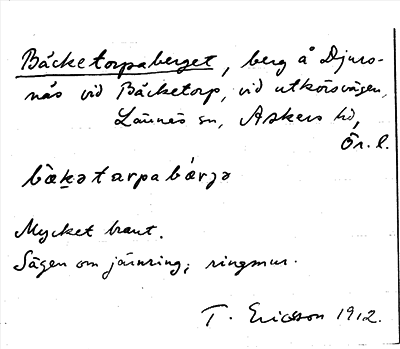 Bäcketorpaberget, berg å Djurs-
näs vid Bäcketorp, vid utkörsvägen,
Lännäs sn, Askers hd,
Ör. l.
bæ̀kətarpabǽrjə
Mycket brant.
Sägen om järnring; ringmur.
T. Ericsson 1912.